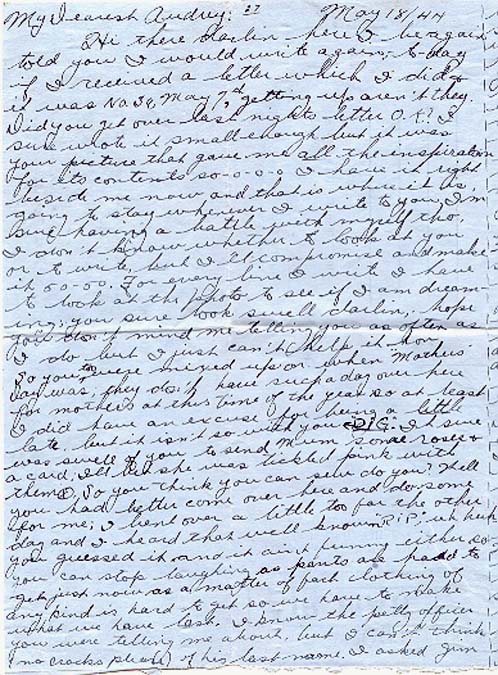 My Dearest Audrey: 27 May 18/44
Hi there darlin here I be again
told you I would write again to-day
if I received a letter which I did &
it was No 38, May 7th, getting up aren't they.
Did you get over last nights letter O.K.? I
sure wrote it small enough but it was
your picture that gave me all the inspiration
for its contents so-o-o-o I have it right
beside me now and that is where it is
going to stay whenever I write to you, I'm
sure having a battle with myself tho.
I don't know whether to look at you
or to write, but I'll compromise and make
it 50-50. For every line I write I have
to look at the photo to see if I am dream-
ing; you sure look swell darlin, hope
you don't mind me telling you as often as
I do but I just can't help it hon.
So you too were mixed up on when Mothers
Day was, they don't have such a day over here
for mothers at this time of the year so at least
I did have an excuse for being a little
late, but it isn't so with you It sure
was swell of you to send Mum some roses &
a card, I'll bet she was tickled pink with
them. So you think you can sew do you? Well
you had better come over here and do some
for me; I bent over a little too far the other
day and I heard that well known R.I.P., uh huh
you guessed it and it ain't funny either so
you can stop laughing as pants are hard to
get just now as a matter of fact clothing of
any kind is hard to get so we have to make
what we have last. I know the petty officer
you were telling me about, but I can't think
(no cracks please) of his last name. I asked Jim